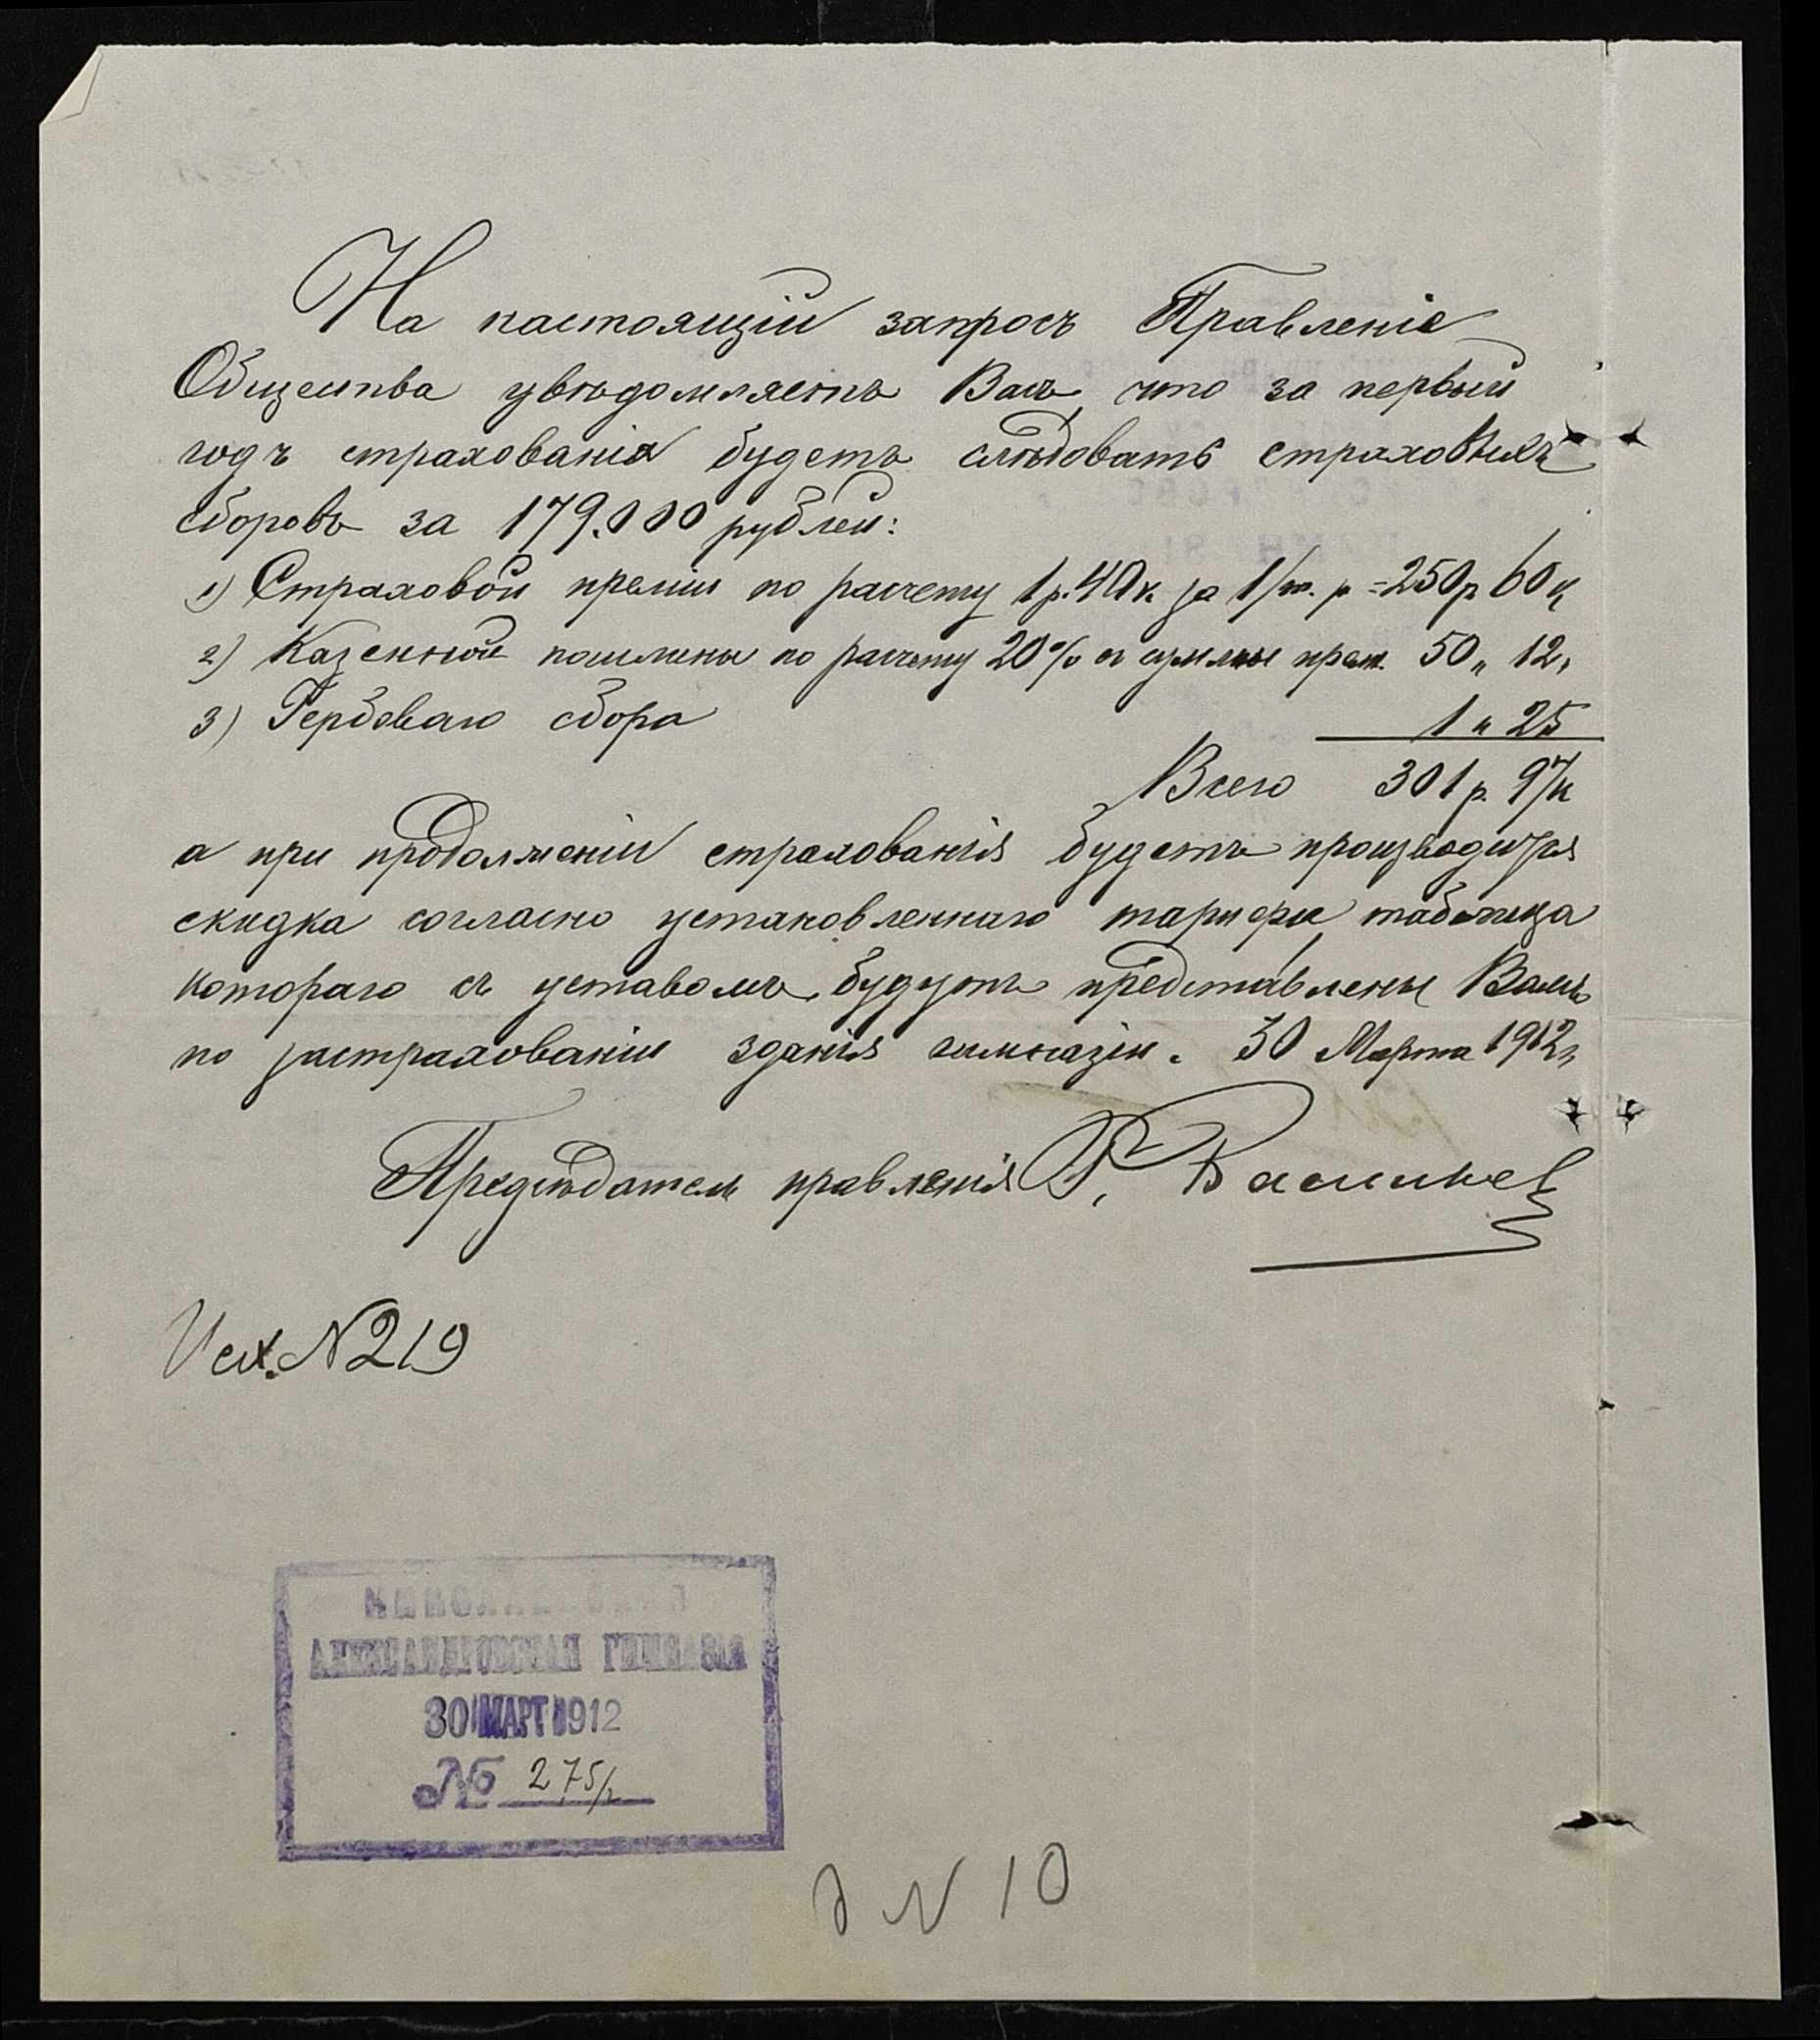 На настоящій запросъ Правленіе
Общества увѣдомляетъ Васъ, что за первый
годъ страхованія будетъ слѣдовать страховыхъ
сборовъ за 179.000 рублей:
1) Страховой преміи по расчету 1 р. 40 к. за 1/т. р = 250 р 60 к
2) Казенной пошлины по расчету 20% съ суммы прем. 50 " 12 "
3) Гербоваго сбора 1 " 25
Всего 301 р. 97 к
а при продолженіи страхованія будетъ производится
скидка согласно установленнаго тарифа таблица
котораго съ уставомъ, будутъ представлены Вамъ
по застрахованіи зданія гимназіи. 30 Марта 1912 г,
Предсѣдатель правленія
Исх. N 219
НИКОЛАЕВСКАЯ
АЛЕКСАНДРОВСКАЯ ГИМНАЗІЯ
30 МАРТ 1912
№ 275/2
д N 10